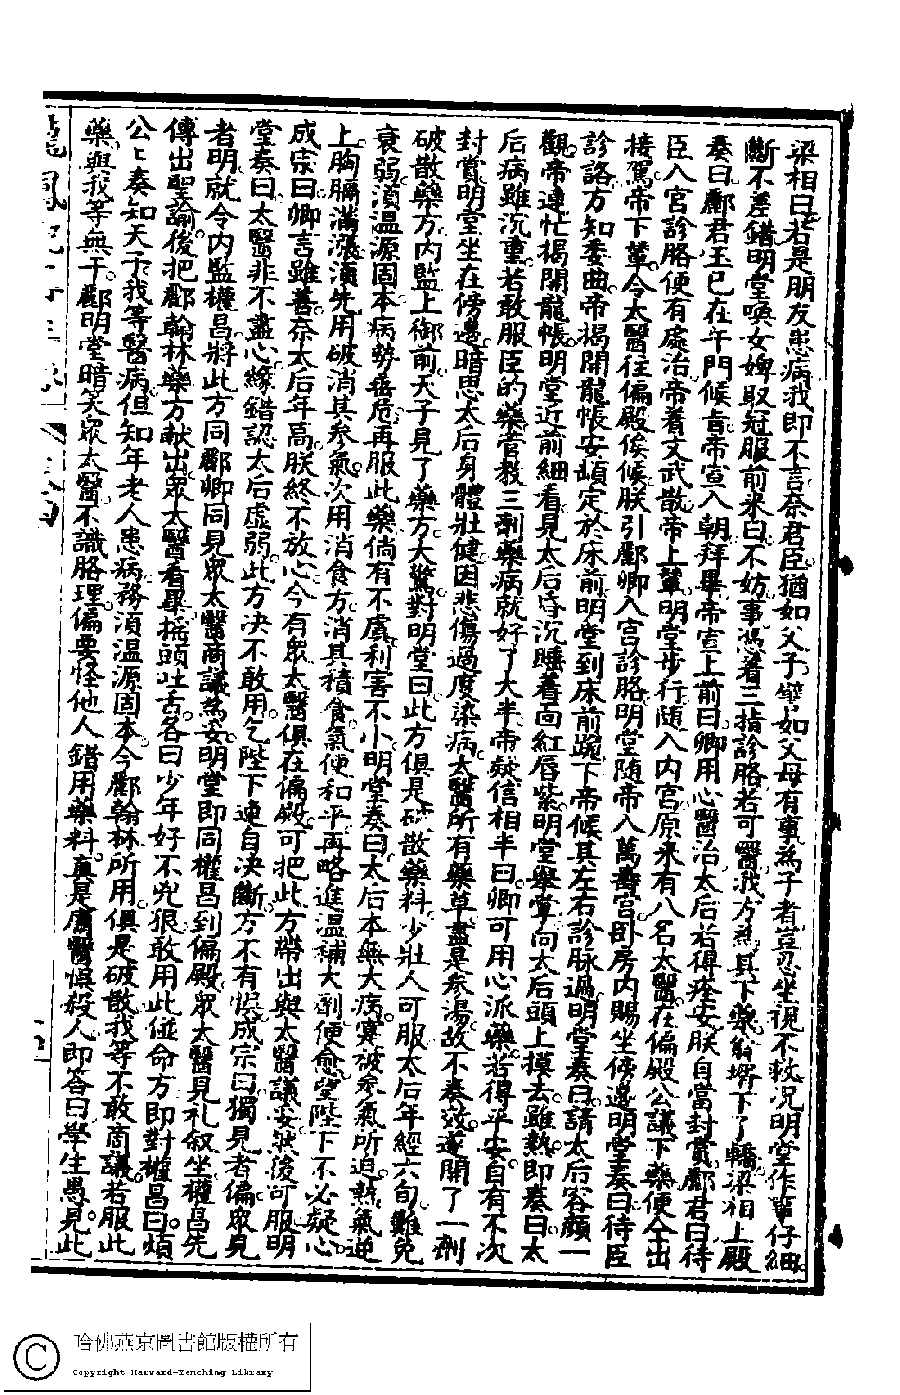 梁相曰若是朋友患病我即不言奈君臣猶如父子譬如父母有事為子者豈忍坐視不救況明堂作事仔細
斷不差錯明堂喚女婢取冠服前來曰不妨事憑着三指診脉若可醫我方為其下藥翁壻下了轎梁相上殿
奏曰酈君玉已在午門候旨帝宣入朝拜畢帝宣上前曰卿用心醫治太后若得痊安朕自當封賞酈君曰待
臣入宮診脉便有處治帝着文武散帝上輦明堂步行随入内宮原來有八名太醫在偏殿公議下藥便仝出
接駕帝下輦令太醫往偏殿俟候朕引酈卿入宮診脉明堂随帝入萬壽宮卧房内賜坐傍邊明堂奏曰待臣
診詻方知委曲帝揭開龍帳安頓定於床前明堂到床前跪下帝候其左右診脉過明堂奏曰請太后容顏一
觀帝連忙揭開龍帳明堂近前細看見太后昏沉睡着面紅唇紫明堂舉掌向太后頭上摸去雖熱即奏曰太
后病雖沉重若敢服臣的藥管教三劑藥病就好了大半帝疑信相半曰卿可用心派藥若得平安自有不次
封賞明堂坐在傍邊暗思太后身體壯健因悲傷過度染病太醫所有藥草盡是參湯故不奏效遂開了一劑
破散藥方内監上御前天子見了藥方大驚對明堂曰此方俱是破散藥料少壯人可服太后年經六旬難免
衰弱須温源固本病勢垂危再服此藥倘有不虞利害不小明堂奏曰太后本無大病寔被參氣所迫熱氣逆
上胸膈滿漲須先用破消其參氣次用消食方消其積食氣便和平再略進温補大劑便愈望陛下不必疑心
成宗曰卿言雖善奈太后年高朕終不放心今有眾太醫俱在偏殿可把此方帶出與太醫議妥然後可服明
堂奏曰太醫非不盡心緣錯認太后虚弱此方决不敢用乞陛下速自决斷方不有悮成宗曰獨見者偏眾見
者明就令内監權昌將此方同酈卿同見眾太醫商議為妥明堂即同權昌到偏殿眾太醫見礼叙坐權昌先
傳出聖諭後把酈翰林藥方献出眾太醫看畢摇頭吐舌各曰少年好不兇狠敢用此碰命方即對權昌曰煩
公公奏知天子我等醫病但知年老人患病務須温源固本今酈翰林所用俱是破散我等不敢商議若服此
藥與我等無干酈明堂暗笑眾太醫不識脉理偏要怪他人錯用藥料真是庸醫悞殺人即答曰學生愚見此
哈佛燕京圖書館版權所有
Copyright Harvard-Yenching Library